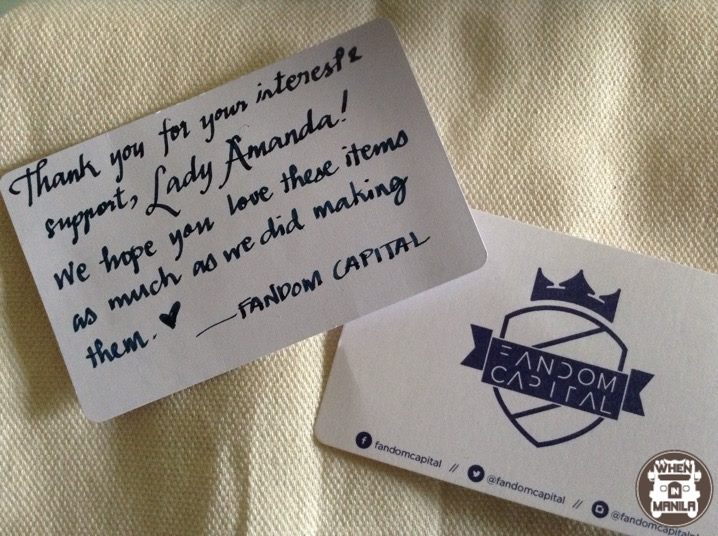 Thank you for your interest &
support, Lady Amanda!
We hope you love these items
as much as we did making
them. ♥ — FANDOM CAPITAL
FANDOM
CAPITAL
fandomcapital // @fandomcapital // @fandomcapital
WHEN
IN
MANILA